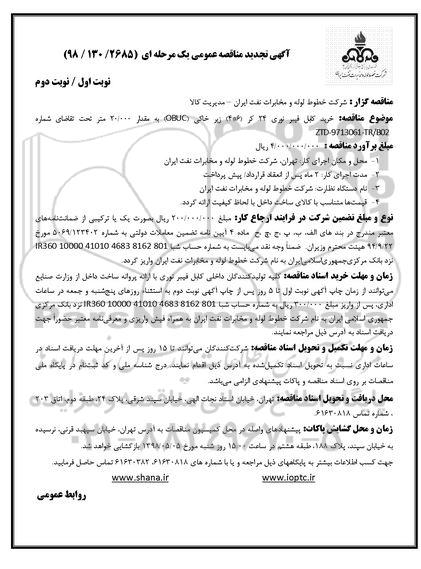 آگهی تجدید مناقصه عمومی یک مرحله ای (۹۸ / ۱۳۰ /۲۶۸۵)
نوبت اول / نوبت دوم
مناقصه گزار : شرکت خطوط لوله و مخابرات نفت ایران – مدیریت کالا
موضوع مناقصه: خرید کابل فیبر نوری ۲۴ کر (۶*۴) زیر خاکی (OBUC) به مقدار ۲۰/۰۰۰ متر تحت تقاضای شماره
ZTD-9713061-TR/B02
مبلغ برآورد مناقصه : ۴/۰۰۰/۰۰۰/۰۰۰ ریال
۱- محل و مکان اجرای کار: تهران، شرکت خطوط لوله و مخابرات نفت ایران
۲- مدت اجرای کار: ۲ ماه پس از انعقاد قرارداد/ پیش پرداخت
۳- نام دستگاه نظارت: شرکت خطوط لوله و مخابرات نفت ایران
۴- قیمت‌ها متناسب با کالای ساخت داخل با لحاظ کیفیت ارائه گردد.
نوع و مبلغ تضمین شرکت در فرایند ارجاع کار: مبلغ ۲۰۰/۰۰۰/۰۰۰ ریال بصورت یک یا ترکیبی از ضمانت‌نامه‌های
معتبر مندرج در بند های الف، ب، پ، ج، چ، ح ماده ۴ آیین نامه تضمین معاملات دولتی به شماره ۱۲۳۴۰۲/ت۵۰۶۵۹ مورخ
۹۴/۹/۲۲ هیئت محترم وزیران. ضمناً وجه نقد می‌بایست به شماره حساب شبا IR360 10000 41010 4683 8162 801
نزد بانک مرکزی‌جمهوری‌اسلامی‌ایران به نام شرکت خطوط لوله و مخابرات نفت ایران واریز گردد.
زمان و مهلت خرید اسناد مناقصه: کلیه تولیدکنندگان داخلی کابل فیبر نوری با ارائه پروانه ساخت داخل از وزارت صنایع
می‌توانند از زمان چاپ آگهی نوبت اول تا ۵ روز پس از چاپ آگهی نوبت دوم به استثناء روزهای پنج‌شنبه و جمعه در ساعات
اداری، پس از واریز مبلغ ۳۰۰/۰۰۰ ریال به شماره حساب شبا IR360 10000 41010 4683 8162 801 نزد بانک مرکزی
جمهوری اسلامی ایران به نام شرکت خطوط لوله و مخابرات نفت ایران به همراه فیش واریزی و معرفی‌نامه معتبر حضوراً جهت
دریافت اسناد به آدرس ذیل مراجعه نمایند.
زمان و مهلت تکمیل و تحویل اسناد مناقصه: شرکت‌کنندگان می‌توانند تا ۱۵ روز پس از آخرین مهلت دریافت اسناد در
ساعات اداری نسبت به تحویل اسناد تکمیل‌شده به آدرس ذیل اقدام نمایند. درج شناسه ملی و کد ثبت‌نام در پایگاه ملی
مناقصات بر روی اسناد مناقصه و پاکات پیشنهادی الزامی می‌باشد.
محل دریافت و تحویل اسناد مناقصه: تهران، خیابان استاد نجات الهی، خیابان سپند شرقی، پلاک ۲۴، طبقه دوم، اتاق ۲۰۳
، شماره تماس ۶۱۶۳۰۸۱۸.
زمان و محل گشایش پاکات: پیشنهادهای واصله در محل کمیسیون مناقصات به آدرس تهران، خیابان سپهبد قرنی، نرسیده
به خیابان سپند، پلاک ۱۸۸، طبقه هشتم در ساعت ۱۵:۰۰ روز شنبه مورخ ۱۳۹۸/۰۵/۰۵ بازگشایی خواهد شد.
جهت کسب اطلاعات بیشتر به پایگاههای ذیل مراجعه و یا با شماره های ۶۱۶۳۰۸۱۸، ۶۱۶۳۰۳۸۲ تماس حاصل فرمایید.
www.shana.ir www.ioptc.ir
روابط عمومی